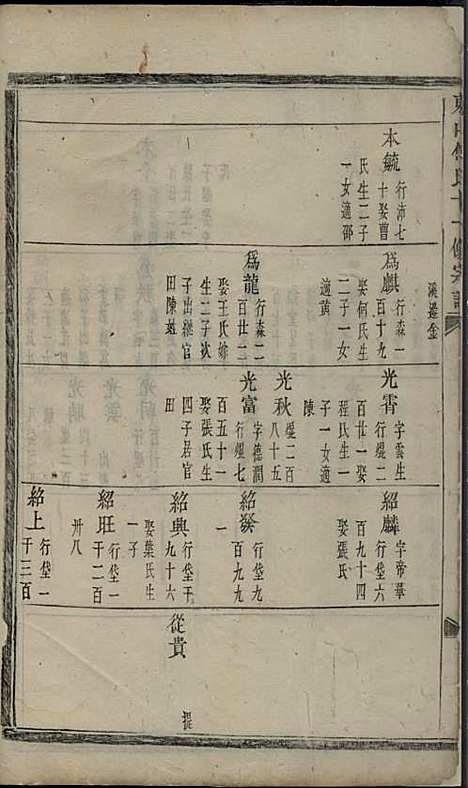 本毓
行沛七
十娶曹
氏生二子
一女適邵
為麒
行森一
百十九
娶何氏生
二子一女
適黃
為龍
行森二
百廿二
娶王氏
生二子次
子出繼官
田陳姓
光霄
字雲生
行焜二
百廿一娶
程氏生一
子一女適
陳
光秋
焜二百
八十五
光富
字德潤
行焜七
百五十一
娶張氏生
四子居官
田
紹麟
字帝華
行垡六
百九十四
娶張氏
紹發
行垡九
百九九
一
紹興
行垡千
九十六
娶葉氏生
一子
紹旺
行垡一
千二百
卅八
紹上
行垡一
千三百
從貴